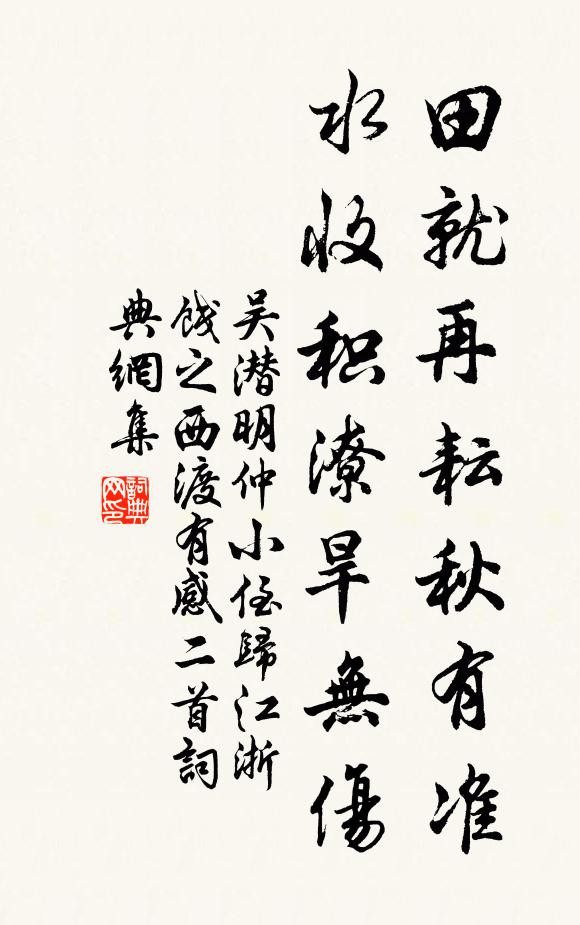 田就再耘秋有准
水收积潦旱無傷
吴潜明仲小侄歸江浙
餞之西渡有感二首詞
典網集
詞典
网印